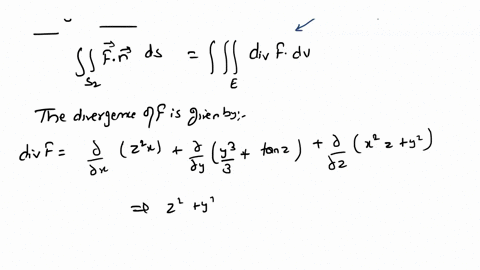 ∬_{S₂} F⃗·n⃗ ds = ∭_E div F·dv
The divergence of F is given by:-
div F = ∂/∂x (z²x) + ∂/∂y (y³/3 + tan z) + ∂/∂z (x²z + y²)
⇒ z² + y²